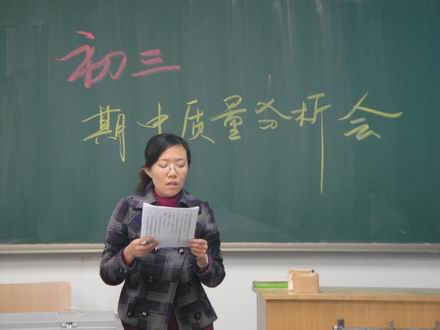 初三
期中质量分析会